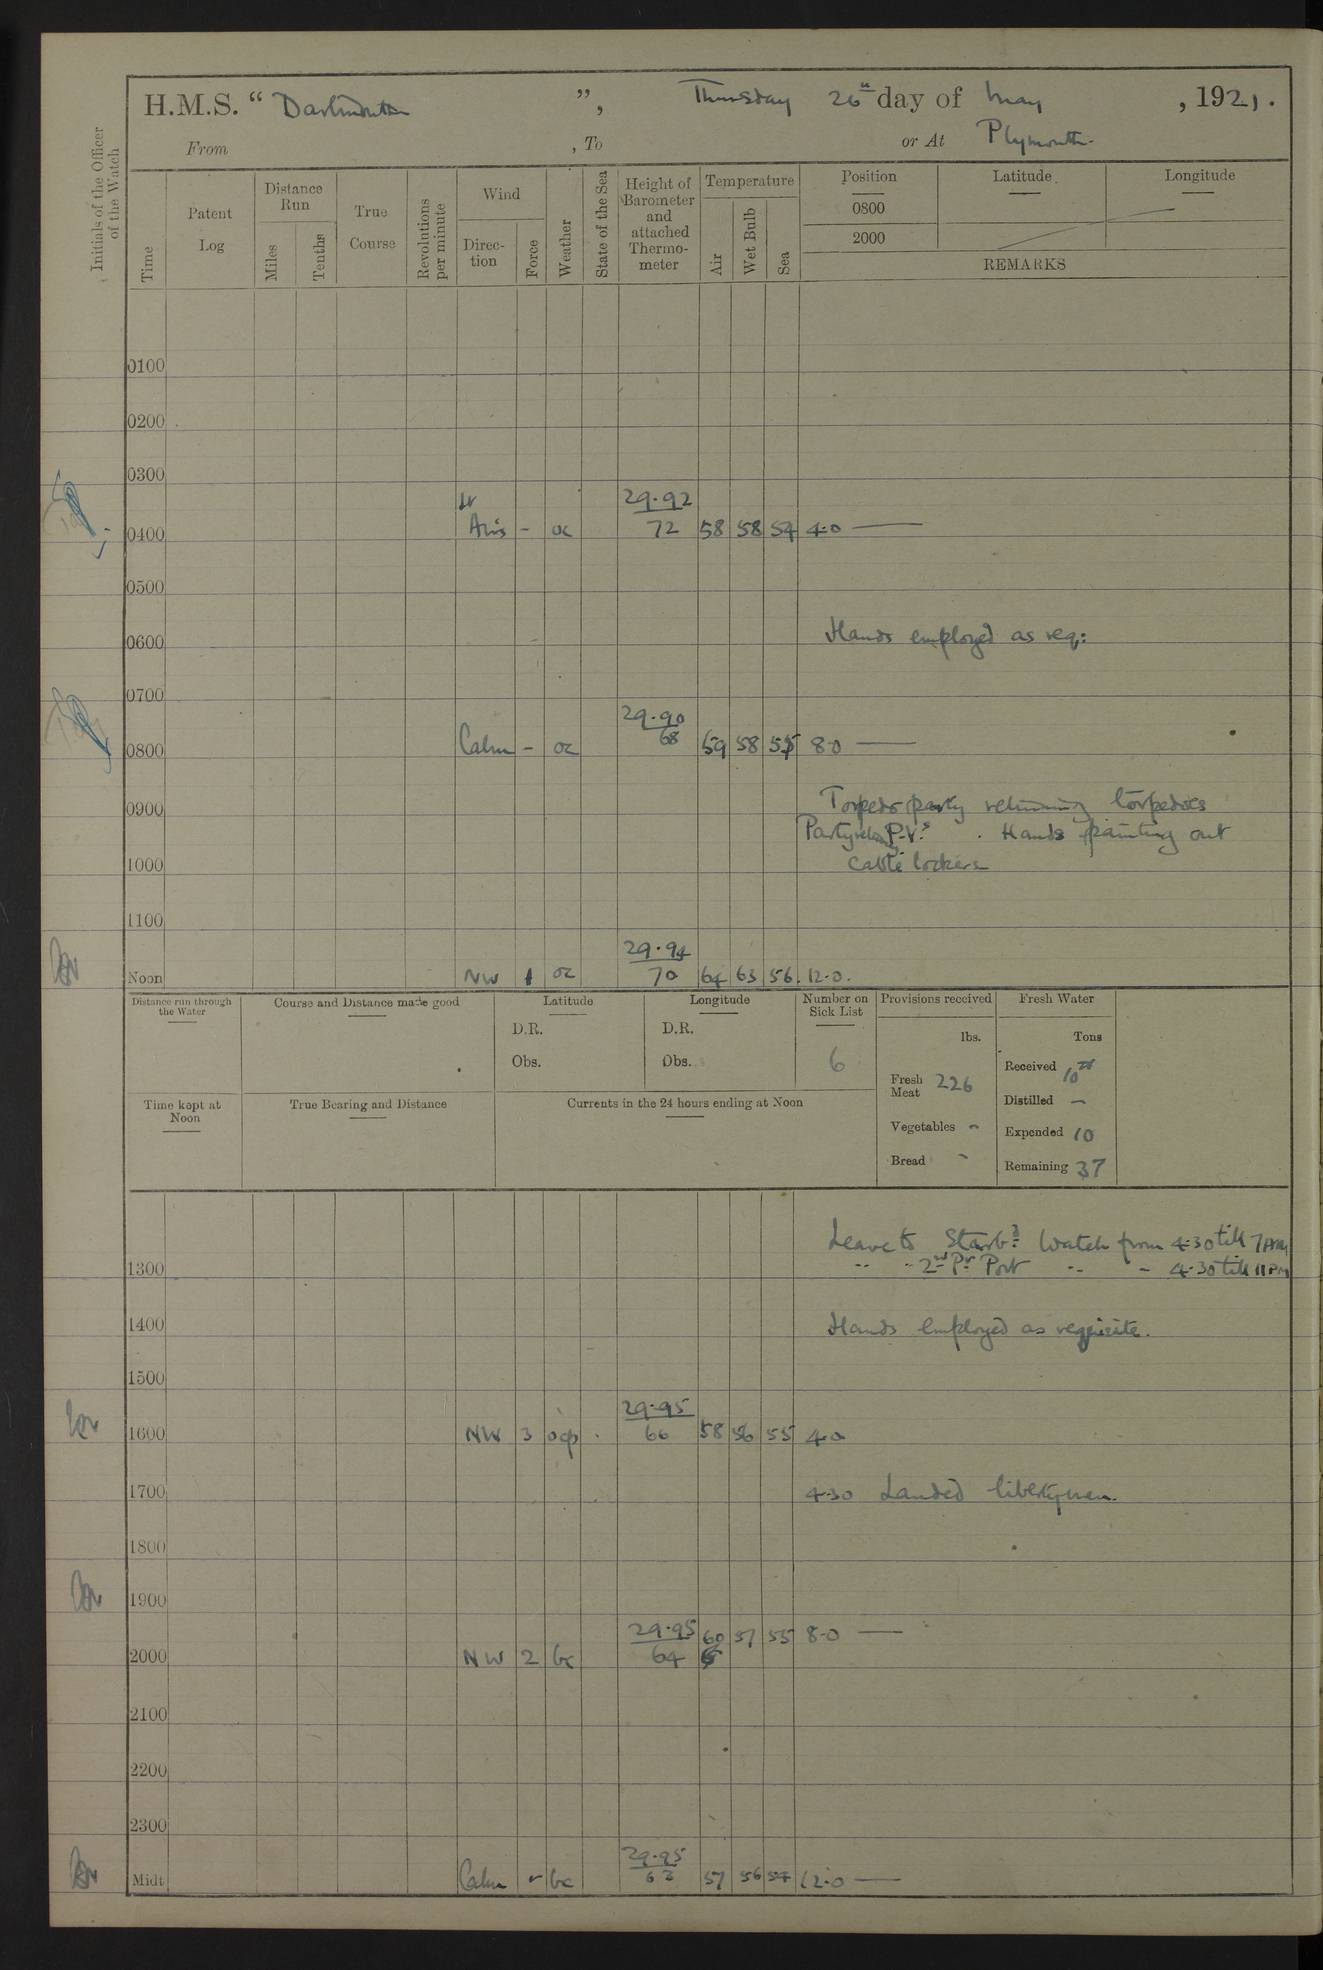 H.M.S. “ Dartmouth ”, Thursday 26th day of May , 1921.
From , To or At Plymouth.
Initials of the Officer of the Watch
Time
Patent Log
Distance Run
Miles
Tenths
True Course
Revolutions per minute
Wind
Direction
Force
Weather
State of the Sea
Height of Barometer and attached Thermometer
Temperature
Air
Wet Bulb
Sea
Position Latitude Longitude
0800
2000
REMARKS
0100
0200
0300
Lt 29.92
0400 Airs - oc 72 58 58 54 4.0
0500
0600 Hands employed as req:
0700
29.90
0800 Calm - oc 68 59 58 55 8.0
0900 Torpedo party returning torpedoes
Party P.V.s . Hands painting out
1000 Cable lockers
1100
29.94
Noon NW 1 oc 70 64 63 56. 12.0.
Distance run through the Water
Course and Distance made good
Latitude
D.R.
Obs.
Longitude
D.R.
Obs.
Number on Sick List
6
Provisions received
lbs.
Fresh Meat 226
Vegetables -
Bread -
Fresh Water
Tons
Received 10
Distilled -
Expended 10
Remaining 37
Time kept at Noon
True Bearing and Distance
Currents in the 24 hours ending at Noon
Leave to Starbd: Watch from 4.30 till 7AM
1300 " " 2nd Pt Port " " 4.30 till 11PM
1400 Hands employed as requisite.
1500
29.95
1600 NW 3 ocp 66 58 56 55 4.0
1700 4.30 Landed libertymen.
1800
1900
29.95 60 57 55 8.0
2000 NW 2 bc 64
2100
2200
2300
29.95
Midt Calm - bc 63 57 56 54 12.0